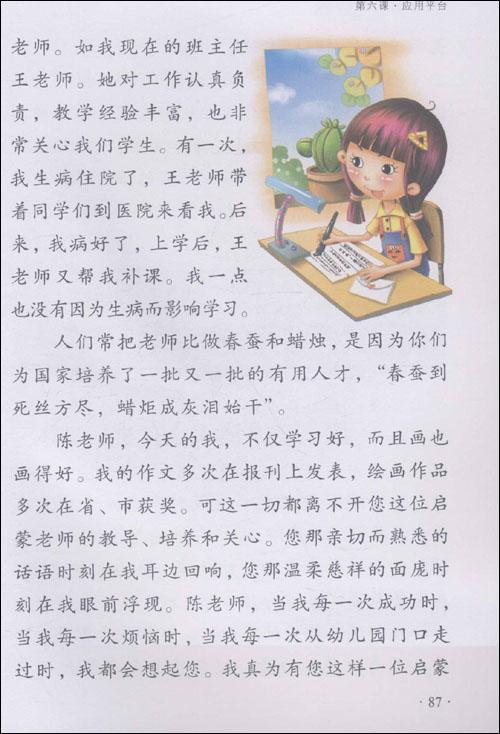 第六课·应用平台
老师。如我现在的班主任
王老师。她对工作认真负
责，教学经验丰富，也非
常关心我们学生。有一次，
我生病住院了，王老师带
着同学们到医院来看我。后
来，我病好了，上学后，王
老师又帮我补课。我一点
也没有因为生病而影响学习。
人们常把老师比做春蚕和蜡烛，是因为你们
为国家培养了一批又一批的有用人才，“春蚕到
死丝方尽，蜡炬成灰泪始干”。
陈老师，今天的我，不仅学习好，而且画也
画得好。我的作文多次在报刊上发表，绘画作品
多次在省、市获奖。可这一切都离不开您这位启
蒙老师的教导、培养和关心。您那亲切而熟悉的
话语时刻在我耳边回响，您那温柔慈祥的面庞时
刻在我眼前浮现。陈老师，当我每一次成功时，
当我每一次烦恼时，当我每一次从幼儿园门口走
过时，我都会想起您。我真为有您这样一位启蒙
·87·